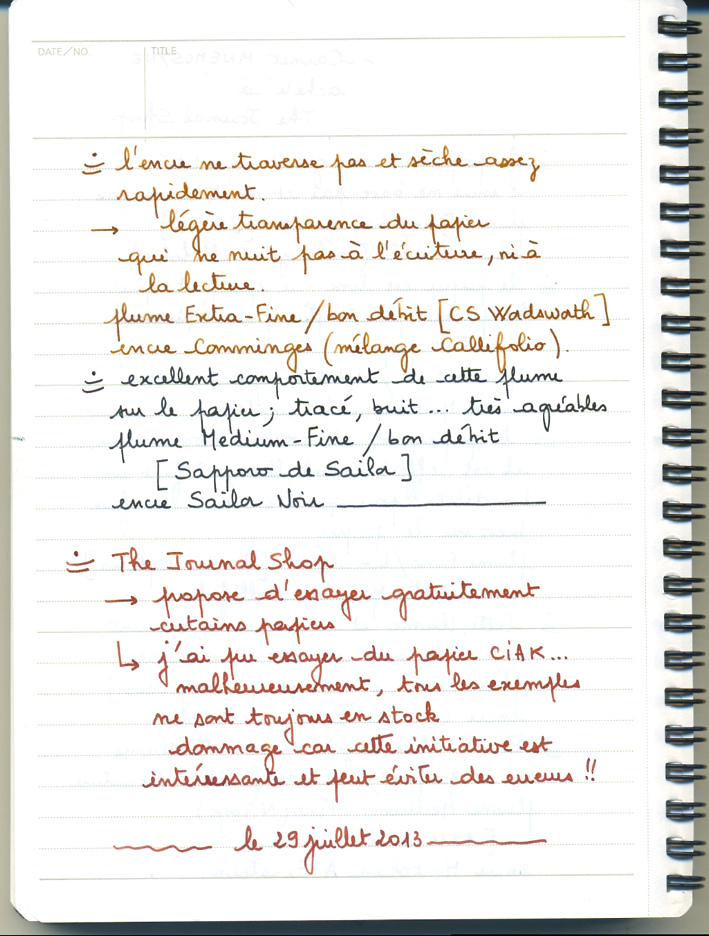 DATE/NO. TITLE
l'encre ne traverse pas et sèche assez
rapidement.
→ légère transparence du papier
qui ne nuit pas à l'écriture, ni à
la lecture.
plume Extra-Fine / bon débit [CS Wadswath]
encre Comminges (mélange Callifolio).
excellent comportement de cette plume
sur le papier ; tracé, bruit ... très agréables
plume Medium-Fine / bon débit
[Sapporo de Sailor]
encre Sailor Noir
The Journal Shop
→ propose d'essayer gratuitement
certains papiers
↳ j'ai pu essayer du papier CIAK...
malheureusement, tous les exemples
ne sont toujours en stock
dommage car cette initiative est
intéressante et peut éviter des erreurs !!
le 29 juillet 2013